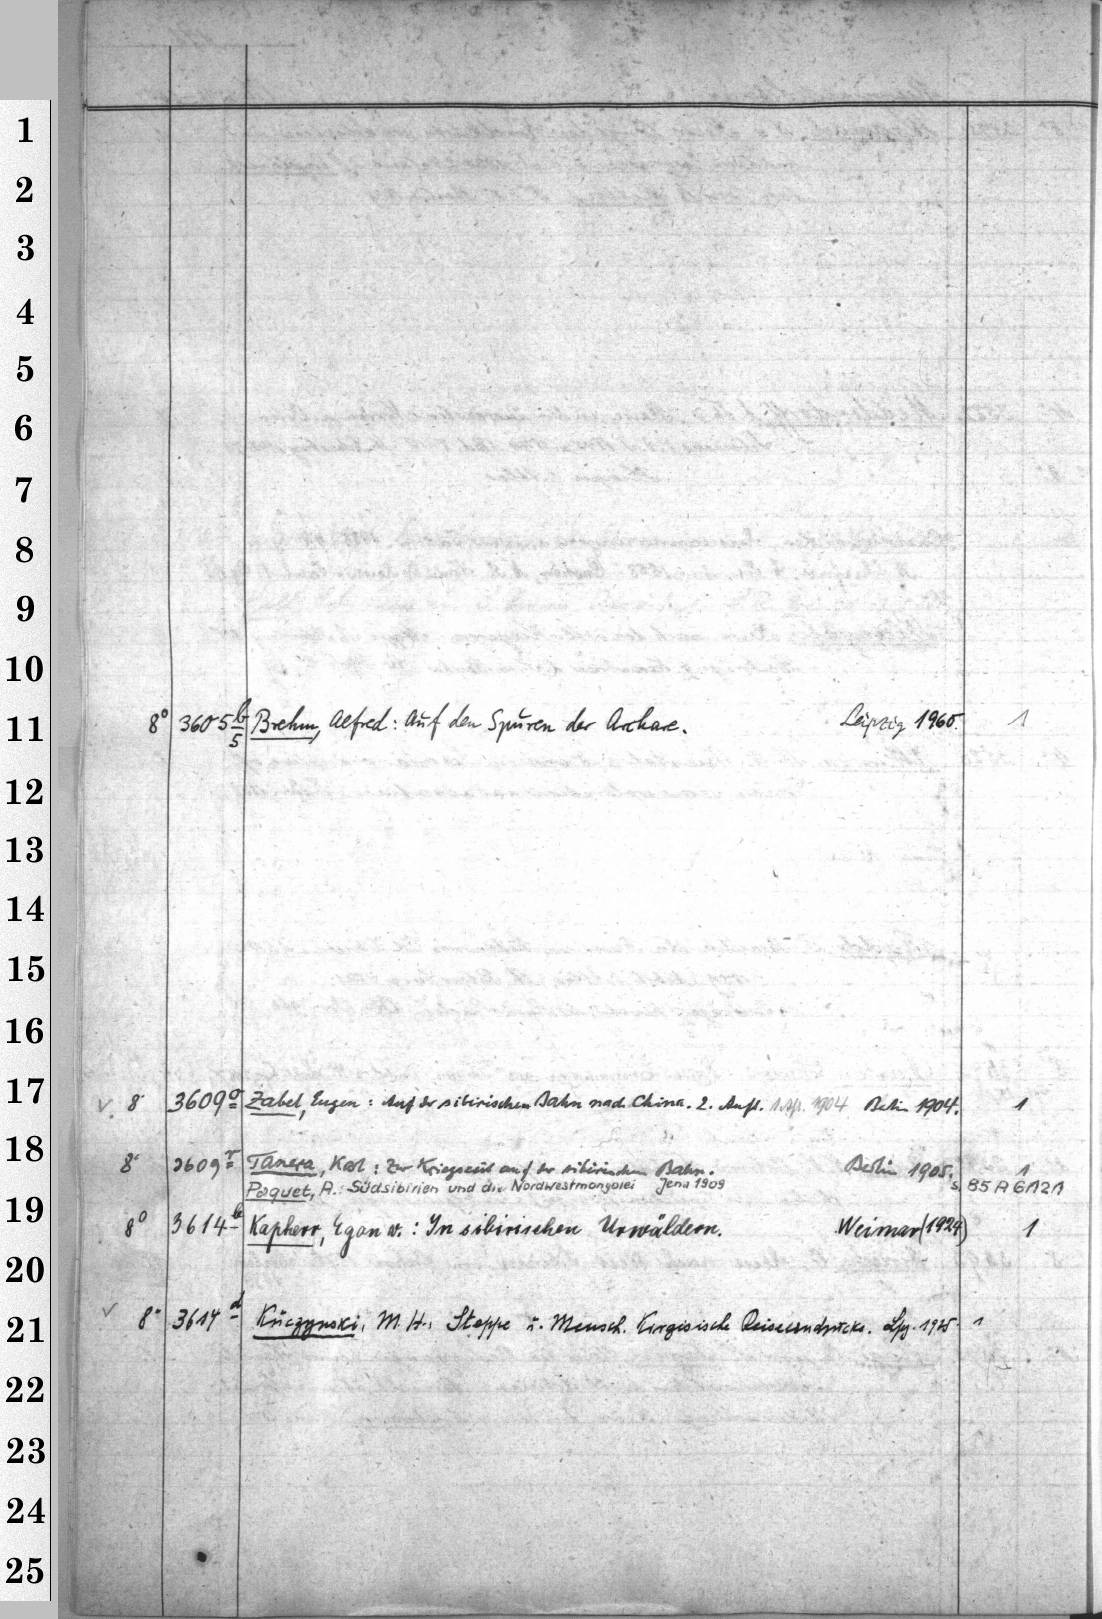 1
2
3
4
5
6
7
8
9
10
8° 3605 b/5 Brehm, Alfred: Auf den Spuren der Archare. Leipzig 1965. 1
11
12
13
14
15
16
17
8° 3609 Zabel, Eugen: Auf der sibirischen Bahn nach China. 2. Aufl. 1. Afl. 1904 Berlin 1904. 1
18
8° 3609 r Tanera, Karl: Zur Kriegszeit auf der sibirischen Bahn. Berlin 1905. 1
Paquet, A.: Südsibirien und die Nordwestmongolei Jena 1909 s. 85 A 6121
19
8° 3614 b Kapherr, Egon v.: In sibirischen Urwäldern. Weimar (1924) 1
20
8° 3614 d Kuczynski, M. H., Steppe u. Mensch. Kirgisische Reiseeindrücke. Lpg. 1925. 1
21
22
23
24
25